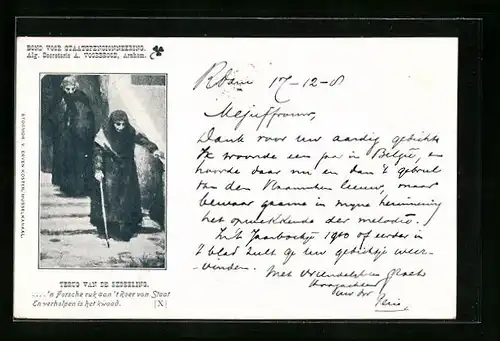 BOND VOOR STAATSPENSIONNEERING.
Alg. Secretaris A. VOOGEROOD, Arnhem.
STOOMDR. V. ERVEN KOSTER, MUSSELKANAAL.
TERUG VAN DE BEDEELING.
....'n Forsche ruk aan 't roer van Staat
En verholpen is het kwaad. [X]
17-12-8
Mejuffrouw,
Dank voor uw aardig gedichtje
Ik woonde een jaar in België, en
hoorde daar nu en dan 't gebrul
van den Vlaamschen leeuw, maar
bewaar gaarne in mijne herinnering
het opwekkende der melodie.
In 't Jaarboekje 1910 of eerder in
't blad zult ge uw gedichtje weer-
vinden. Met vriendelijken groet
Hoogachtend